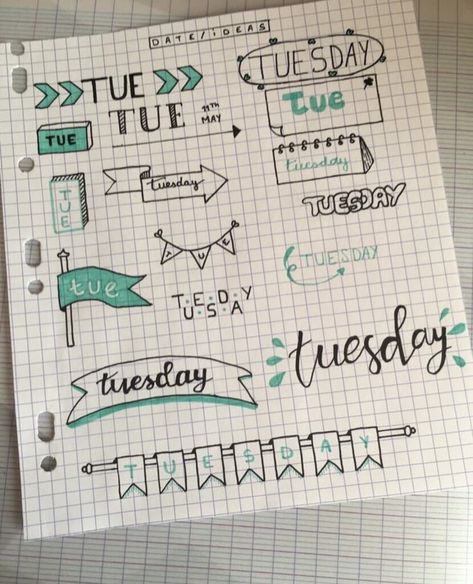 DATE/IDEAS
TUE
TUESDAY
TUE
11TH MAY
tue
TUE
tuesday
TUE
tuesday
TUESDAY
TUE
TUESDAY
tue
TUESDAY
tuesday
tuesday
TUESDAY